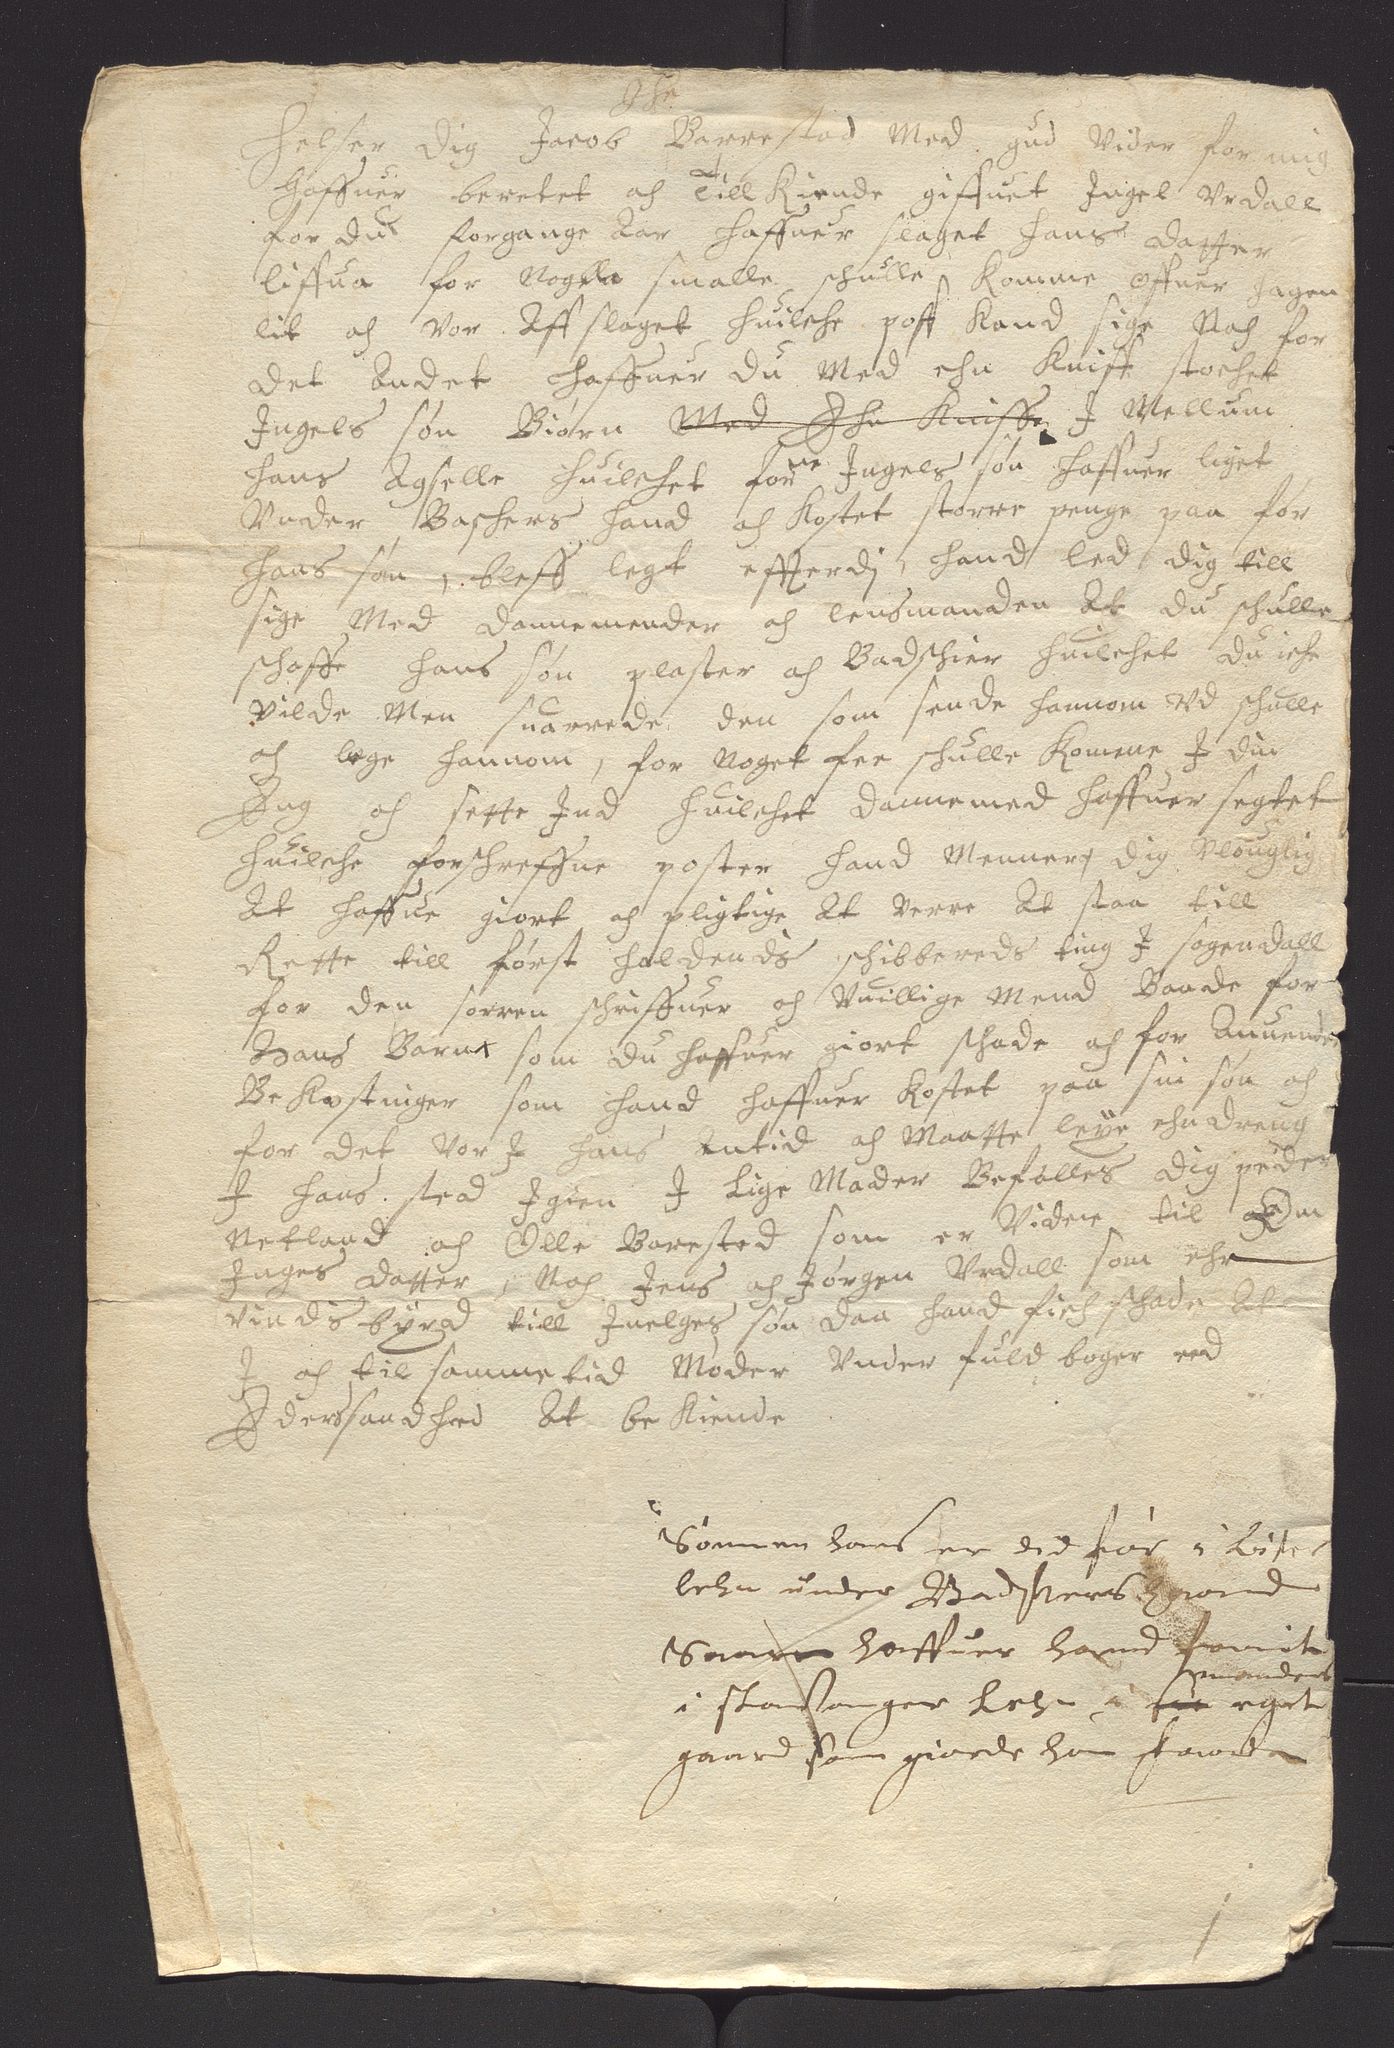 Helser dig Jacob Barrestad Med gud Vider for mig
haffuer beretet och Till Kiende giffuet Ingel Vrdall
for du forgange Aar haffuer slaget hans datter
liffua for Nogle smalle schulle Komme offuer hagen
lit och vor Aff slaget huilche post Kand sige Noch for
det Andet haffuer du Med ehn Kniff stochet
Ingels søn Biørn Med Ehn Kniffe I Mellum
hans Agselle huilchet forne Ingels søn haffuer liget
Vnder Baschers hand och Kostet storre penge paa for
hans søn bleff legt effterdj hand led dig till
sige Med dannemender och lensmanden At du schulle
schaffe hans søn plaster och Badschier huilchet du iche
vilde Men suarrede den som sende hannom Vd schulle
och lege hannom, for noget fee schulle Komme I din
Eng och sette Ind huilchet dannemed haffuer segtet
huilche forschreffne poster hand Menner dig Vlouglig
At haffue giort och pligtige At verre At staa till
Rette till først holdendis schibbereds ting I sogendall
for den sorren schriffuer och Vuillige Mend Baade for
Hans Barn som du haffuer giort schade och for Anuende
Be Kostninger som hand haffuer Kostet paa sin søn och
for det vor I hans Antid och Maatte leye ehn dreng
I hans sted Igien I Lige Mader Befalles dig peder
Netland och Olle Barested som er Viden til om
Inges datter, Noch Jens och Jørgen Vrdall som ehr
vindisbyrd till Inelges søn daa hand fich schade At
I och til samme tid Møder Vnder fuld boger eed
Eders sandhed At be Kiende
Sønnen hans er død før i Lister
lehn under Badskers haand
Saaren haffuer hand faait
i Stavanger Lehn i sit mandens eget
gaard som giorde ham skaade